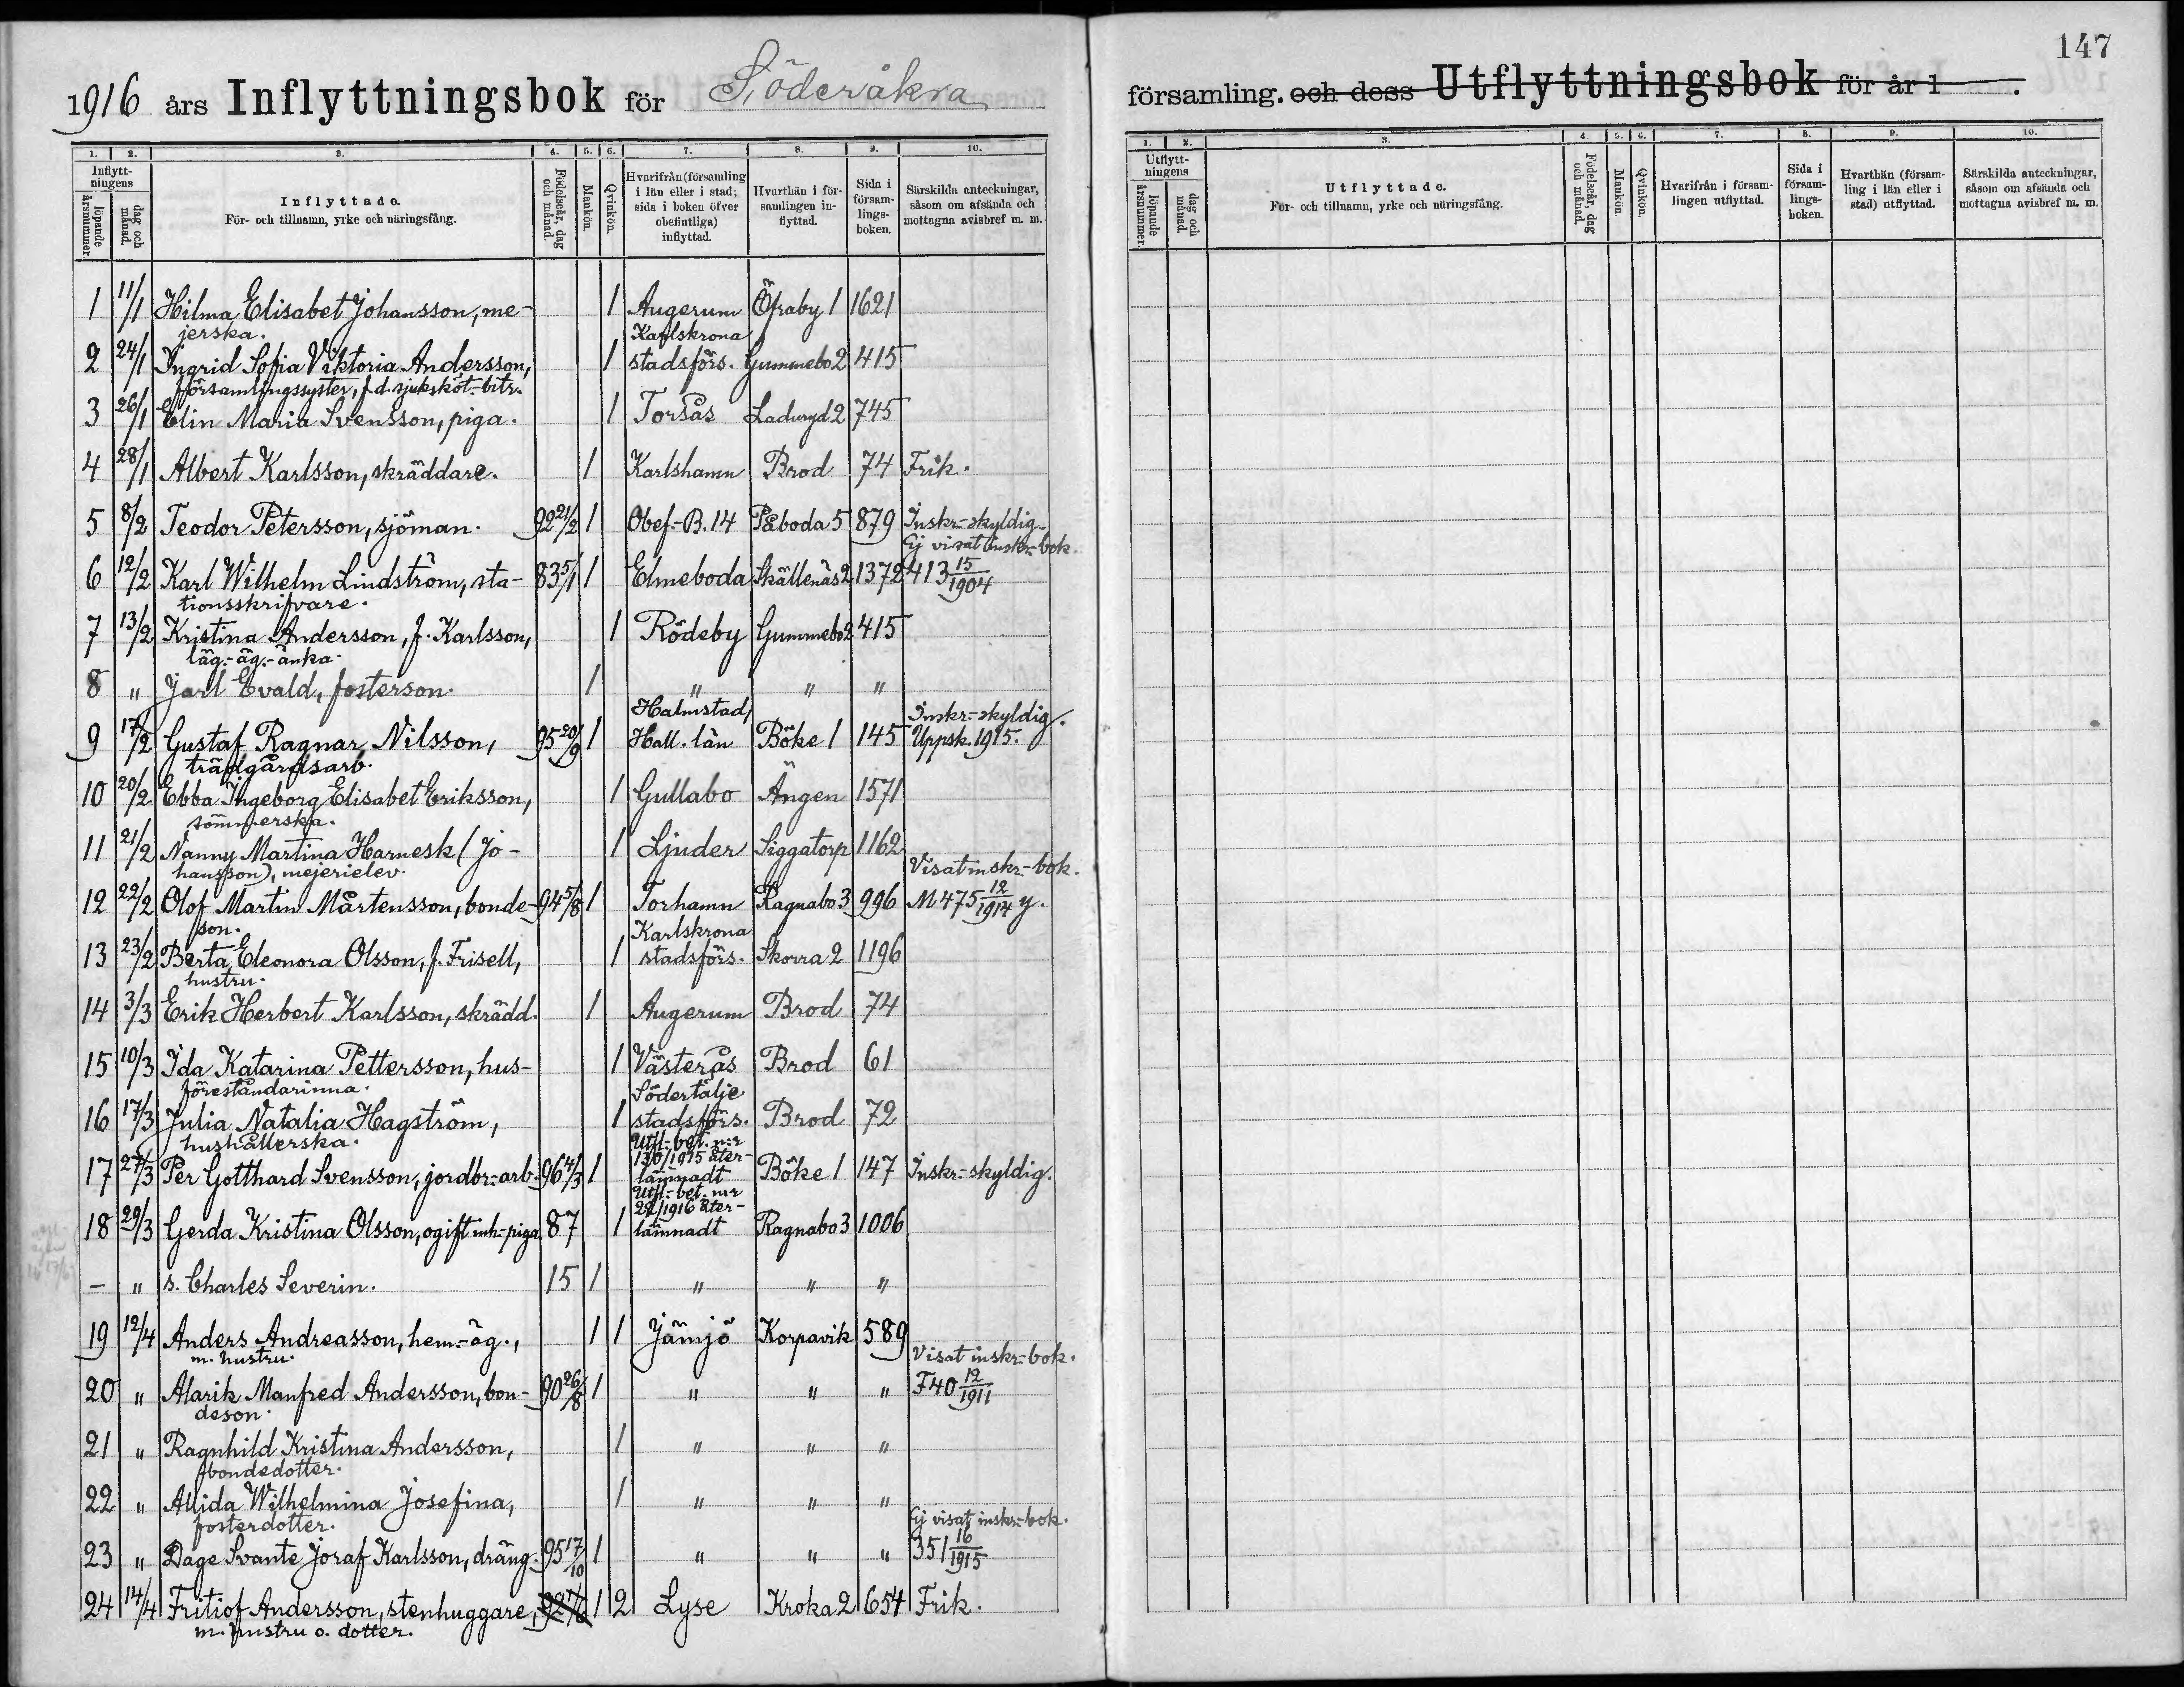 147
1916 års Inflyttningsbok för Söderåkra
församling. och dess Utflyttningsbok för år 1 .
1. 2. 3. 4. 5. 6. 7. 8. 9. 10.
Inflyttningens löpande årsnummer. dag och månad. Inflyttade. För- och tillnamn, yrke och näringsfång. Födelseår, dag och månad. Mankön. Qvinkön. Hvarifrån (församling i län eller i stad; sida i boken öfver obefintliga) inflyttad. Hvarthän i församlingen inflyttad. Sida i församlingsboken. Särskilda anteckningar, såsom om afsända och mottagna avisbref m. m.
1 11/1 Hilma Elisabet Johansson, me- 1 Augerum Öfraby 1 1621
jerska.
Karlskrona
2 24/1 Ingrid Sofia Viktoria Andersson, 1 stadsförs. Gummebo 2 415
församlingssyster, f.d. sjuksköt.-bitr.
3 26/1 Elin Maria Svensson, piga. 1 Torsås Laduryd 2 745
4 28/1 Albert Karlsson, skräddare. 1 Karlshamn Brod 74 Frik.
5 8/2 Teodor Petersson, sjöman. 92 21/2 1 Obef.-B. 14 Påboda 5 879 Inskr.-skyldig.
Ej visat inskr.-bok.
6 12/2 Karl Wilhelm Lindström, sta- 83 5/1 1 Elmeboda Skällenäs 2 1372 413 15/1904
tionsskrifvare.
7 13/2 Kristina Andersson, f. Karlsson, 1 Rödeby Gummebo 2 415
läg.-äg.-änka.
8 " Jarl Evald, fosterson. 1 " " "
Halmstad, Inskr.-skyldig.
9 17/2 Gustaf Ragnar Nilsson, 95 20/9 1 Hall. län Böke 1 145 Uppsk. 1915.
trädgårdsarb.
10 20/2 Ebba Ingeborg Elisabet Eriksson, 1 Gullabo Ängen 1571
sömmerska.
11 21/2 Nanny Martina Harnesk (Jo- 1 Ljuder Siggatorp 1162
hansson), mejerielev. Visat inskr.-bok.
12 22/2 Olof Martin Mårtensson, bonde- 94 5/8 1 Torhamn Ragnabo 3 996 M 475 12/1914 y.
son. Karlskrona
13 23/2 Berta Eleonora Olsson, f. Frisell, 1 stadsförs. Skorra 2 1196
hustru.
14 3/3 Erik Herbert Karlsson, skrädd. 1 Augerum Brod 74
15 10/3 Ida Katarina Pettersson, hus- 1 Västerås Brod 61
föreståndarinna. Södertälje
16 17/3 Julia Natalia Hagström, 1 stadsförs. Brod 72
hushållerska. Utfl.-bet. n:r
130/1915 åter-
17 27/3 Per Gotthard Svensson, jordbr.-arb. 96 4/3 1 lämnadt Böke 1 147 Inskr.-skyldig.
Utfl.-bet. n:r
22/1916 åter-
18 29/3 Gerda Kristina Olsson, ogift inh.-piga 87 1 lämnadt Ragnabo 3 1006
– " s. Charles Severin. 15 1 " " "
19 12/4 Anders Andreasson, hem.-äg., 1 1 Jämjö Korpavik 589
m. hustru. Visat inskr.-bok.
20 " Alarik Manfred Andersson, bon- 90 26/8 1 " " " F 40 12/1911
deson.
21 " Ragnhild Kristina Andersson, 1 " " "
bondedotter.
22 " Alfida Wilhelmina Josefina, 1 " " "
fosterdotter. Ej visat inskr.-bok.
23 " Dage Svante Joraf Karlsson, dräng. 95 17/10 1 " " " 351 16/1915
24 14/4 Fritiof Andersson, stenhuggare, 1 2 Lyse Kroka 2 654 Frik.
m. hustru o. dotter.
1. 2. 3. 4. 5. 6. 7. 8. 9. 10.
Utflyttningens löpande årsnummer. dag och månad. Utflyttade. För- och tillnamn, yrke och näringsfång. Födelseår, dag och månad. Mankön. Qvinkön. Hvarifrån i församlingen utflyttad. Sida i församlingsboken. Hvarthän (församling i län eller i stad) utflyttad. Särskilda anteckningar, såsom om afsända och mottagna avisbref m. m.